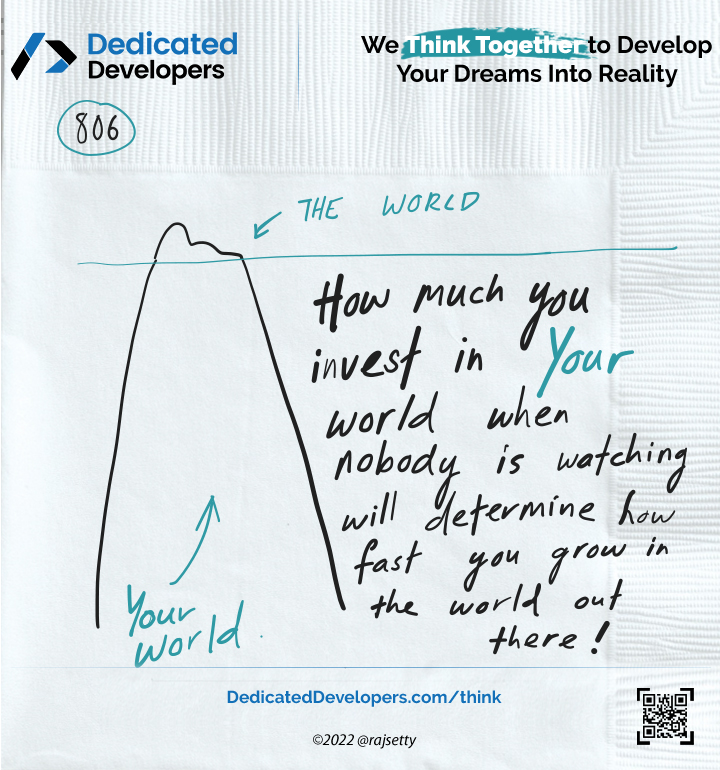 Dedicated
Developers
We Think Together to Develop
Your Dreams Into Reality
806
THE WORLD
How much you
invest in Your
world when
nobody is watching
will determine how
fast you grow in
the world out
there!
Your
world.
DedicatedDevelopers.com/think
©2022 @rajsetty